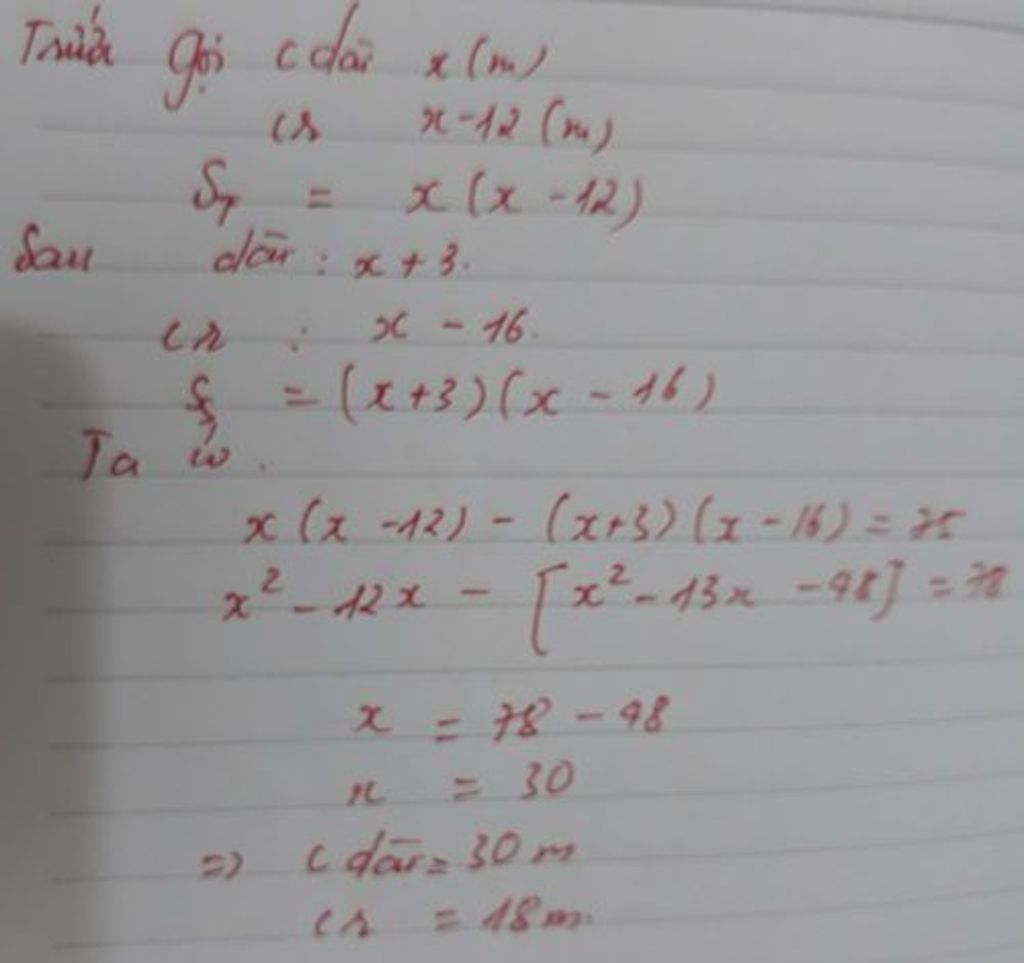 Trước gọi c dài x (m)
cr x - 12 (m)
S_T = x (x - 12)
Sau dài : x + 3.
cr : x - 16.
S = (x+3) (x - 16)
Ta có.
x (x - 12) - (x+3) (x - 16) = 75
x² - 12x - [x² - 13x - 48] = 78
x = 78 - 48
x = 30
=> c dài = 30 m
cr = 18 m.